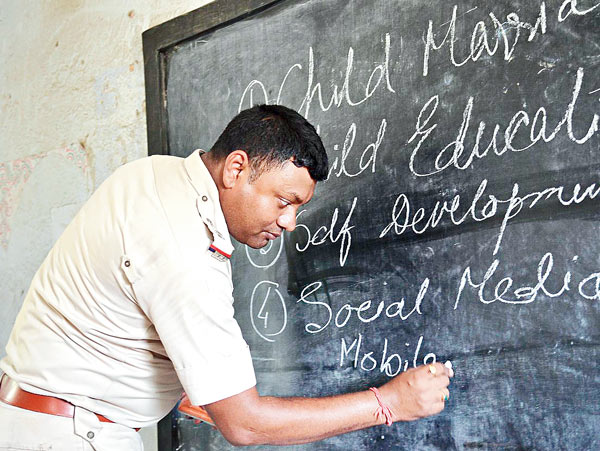 ① Child Marria
Child Educati
③ Self Development
④ Social Media
Mobile